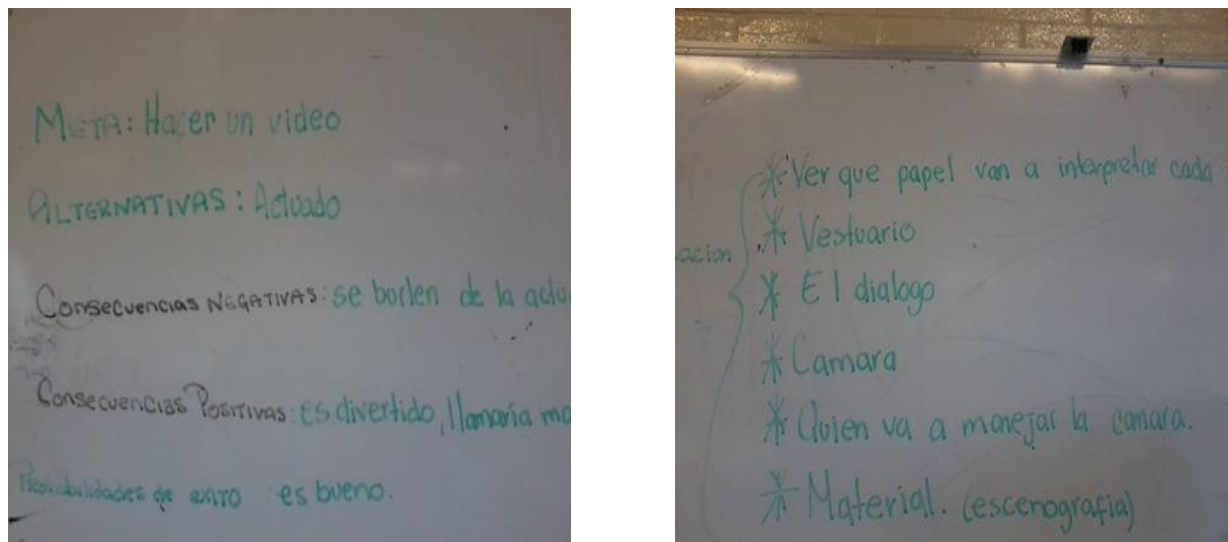 META: Hacer un video
ALTERNATIVAS: Actuado
CONSECUENCIAS NEGATIVAS: se burlen de la actu
CONSECUENCIAS POSITIVAS: es divertido, llamaría
Probabilidades de exito es bueno.
acion
* Ver que papel van a interpretar cada
* Vestuario
* El dialogo
* Camara
* Quien va a manejar la camara.
* Material. (escenografia)